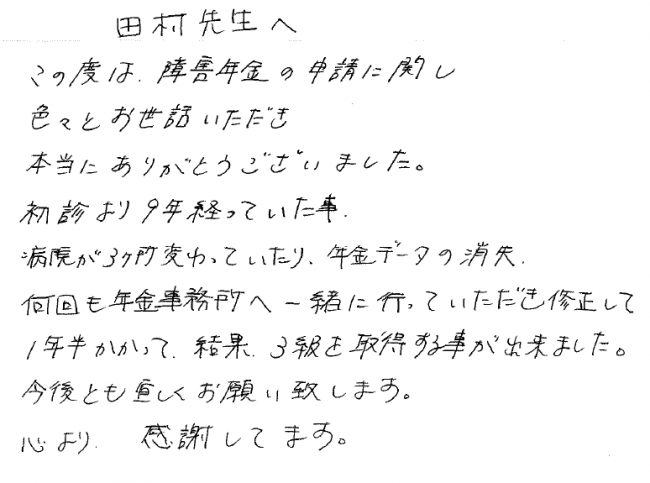 田村先生へ
この度は、障害年金の申請に関し
色々とお世話いただき
本当にありがとうございました。
初診より9年経っていた事、
病院が3ヶ所変わっていたり、年金データの消失、
何回も年金事務所へ一緒に行っていただき修正して
1年半かかって、結果、3級を取得する事が出来ました。
今後とも宜しくお願い致します。
心より、感謝してます。